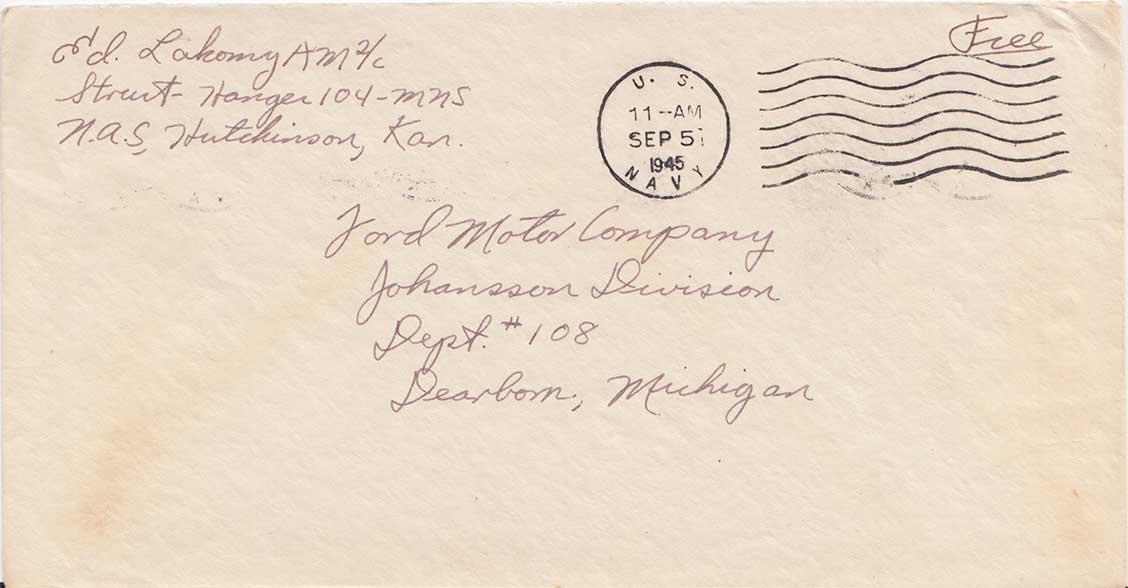 Ed. Lakomy AM 2/c
Strut- Hanger 104-MNS
N.A.S, Hutchinson, Kan.
Free
U. S.
11-AM
SEP 5
1945
NAVY
Ford Motor Company
Johansson Division
Dept. # 108
Dearborn, Michigan